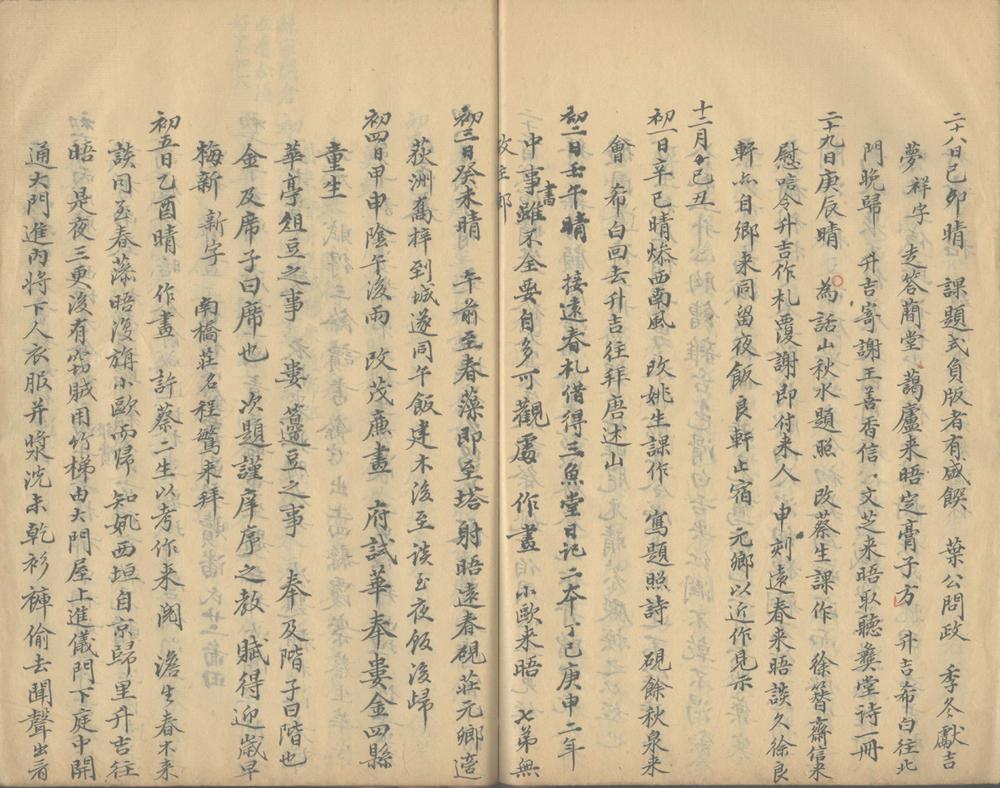 二十八日己卯晴 課題式負版者有盛饌 葉公問政 季冬獻吉
夢祥字 走答簡堂 藹廬来晤定膏子方 升吉希白往北
門晚歸 升吉寄謝王善香信 文芝来晤取聽彝堂诗一冊
二十九日庚辰晴 為話山秋水題照 改蔡生課作 徐簪齋信来
慰唁令升吉作札覆謝即付来人 申刻遠春来晤談久徐良
軒亦自鄉来同留夜飯良軒止宿 元鄉以近作見示
十二月令己丑
初一日辛巳晴燥西南風 改姚生課作 寫題照詩 硯餘秋泉来
會 希白回去升吉往拜唐述山
初二日壬午晴 接遠春札借得三魚堂日记二本丁巳庚申二年
中事雖不全要自多可觀處 作畫 小歐来晤 七弟無
書
改生郎
初三日癸未晴 午前至春藻即至塔射晤遠春硯莊元鄉適
荻洲舊梓到城遂同午飯建木後至談至夜飯後歸
初四日甲申陰午後雨 改茂廉畫 府試華奉婁金四縣
童生
華亭俎豆之事 婁籩豆之事 奉及階子曰階也
金及席子曰席也 次題謹庠序之教 賦得迎歲早
梅新 新字 南橋莊名程鷺来拜
初五日乙酉晴 作畫 許蔡二生以考作来閱 澹生春木来
談同至春藻晤後旃小歐而歸 知姚西垣自京歸里升吉往
晤 是夜三更後有窃賊用竹梯由大門屋上進儀門下庭中開
通大門進內將下人衣服并漿洗未乾衫褲偷去聞聲出看